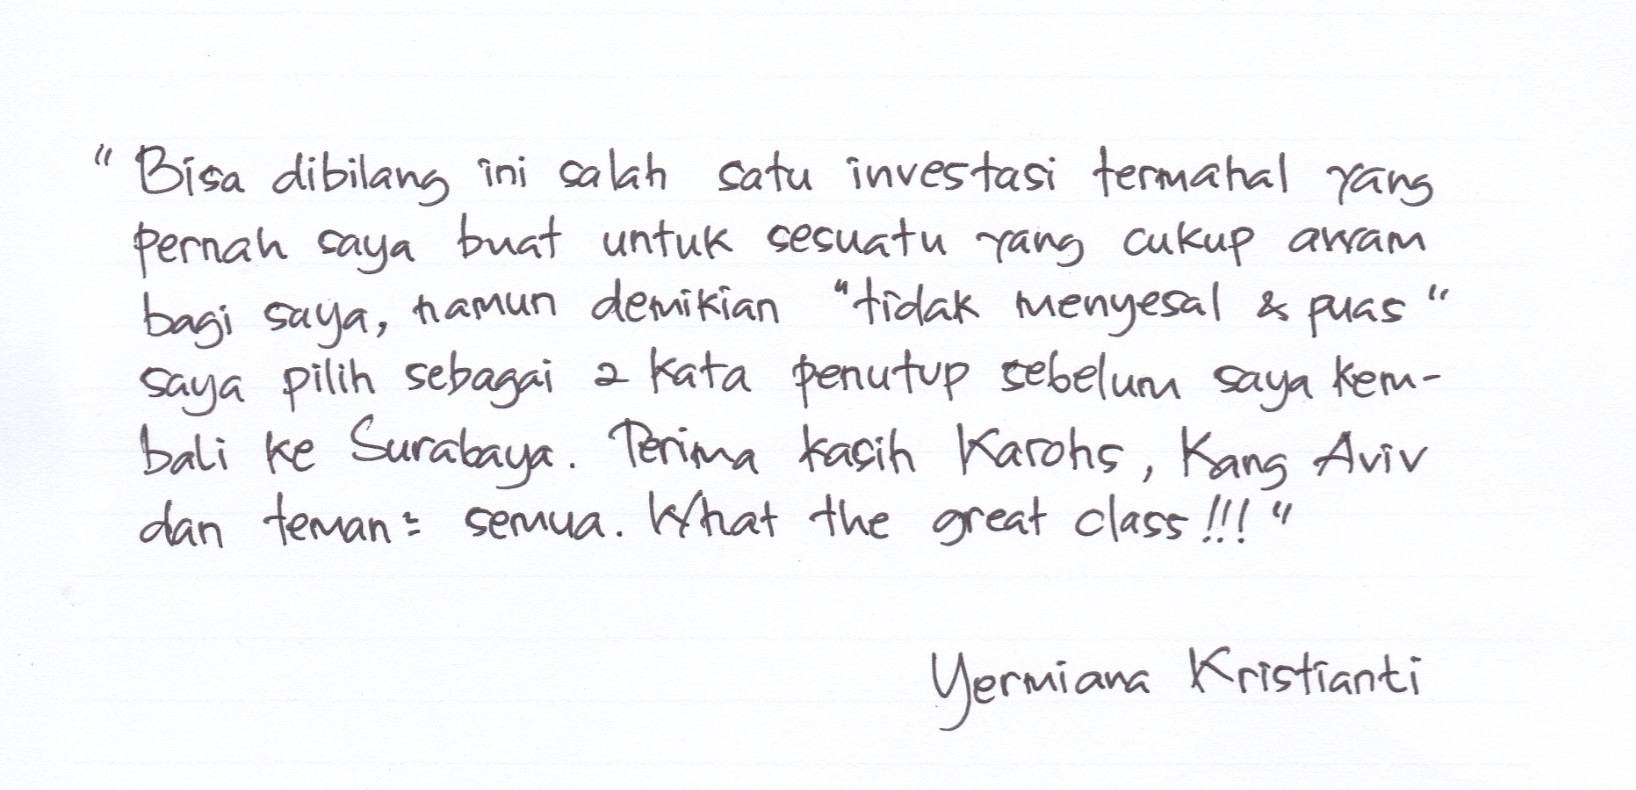 "Bisa dibilang ini salah satu investasi termahal yang
pernah saya buat untuk sesuatu yang cukup awam
bagi saya, namun demikian "tidak menyesal & puas"
saya pilih sebagai 2 kata penutup sebelum saya kem-
bali ke Surabaya. Terima kasih Karohs, Kang Aviv
dan teman² semua. What the great class!!!"
Yermiana Kristianti